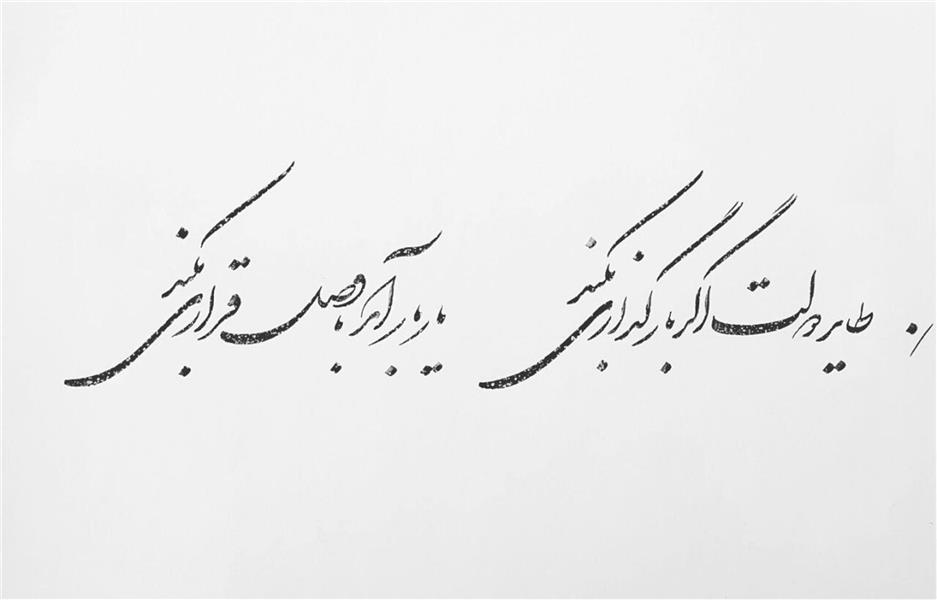 طایر دولت اگر باز گذاری بکند یار باز آید و با وصل قراری بکند